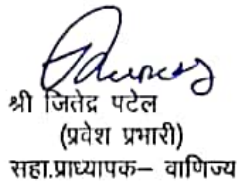 श्री जितेद्र पटेल
(प्रवेश प्रभारी)
सहा.प्राध्यापक– वाणिज्य